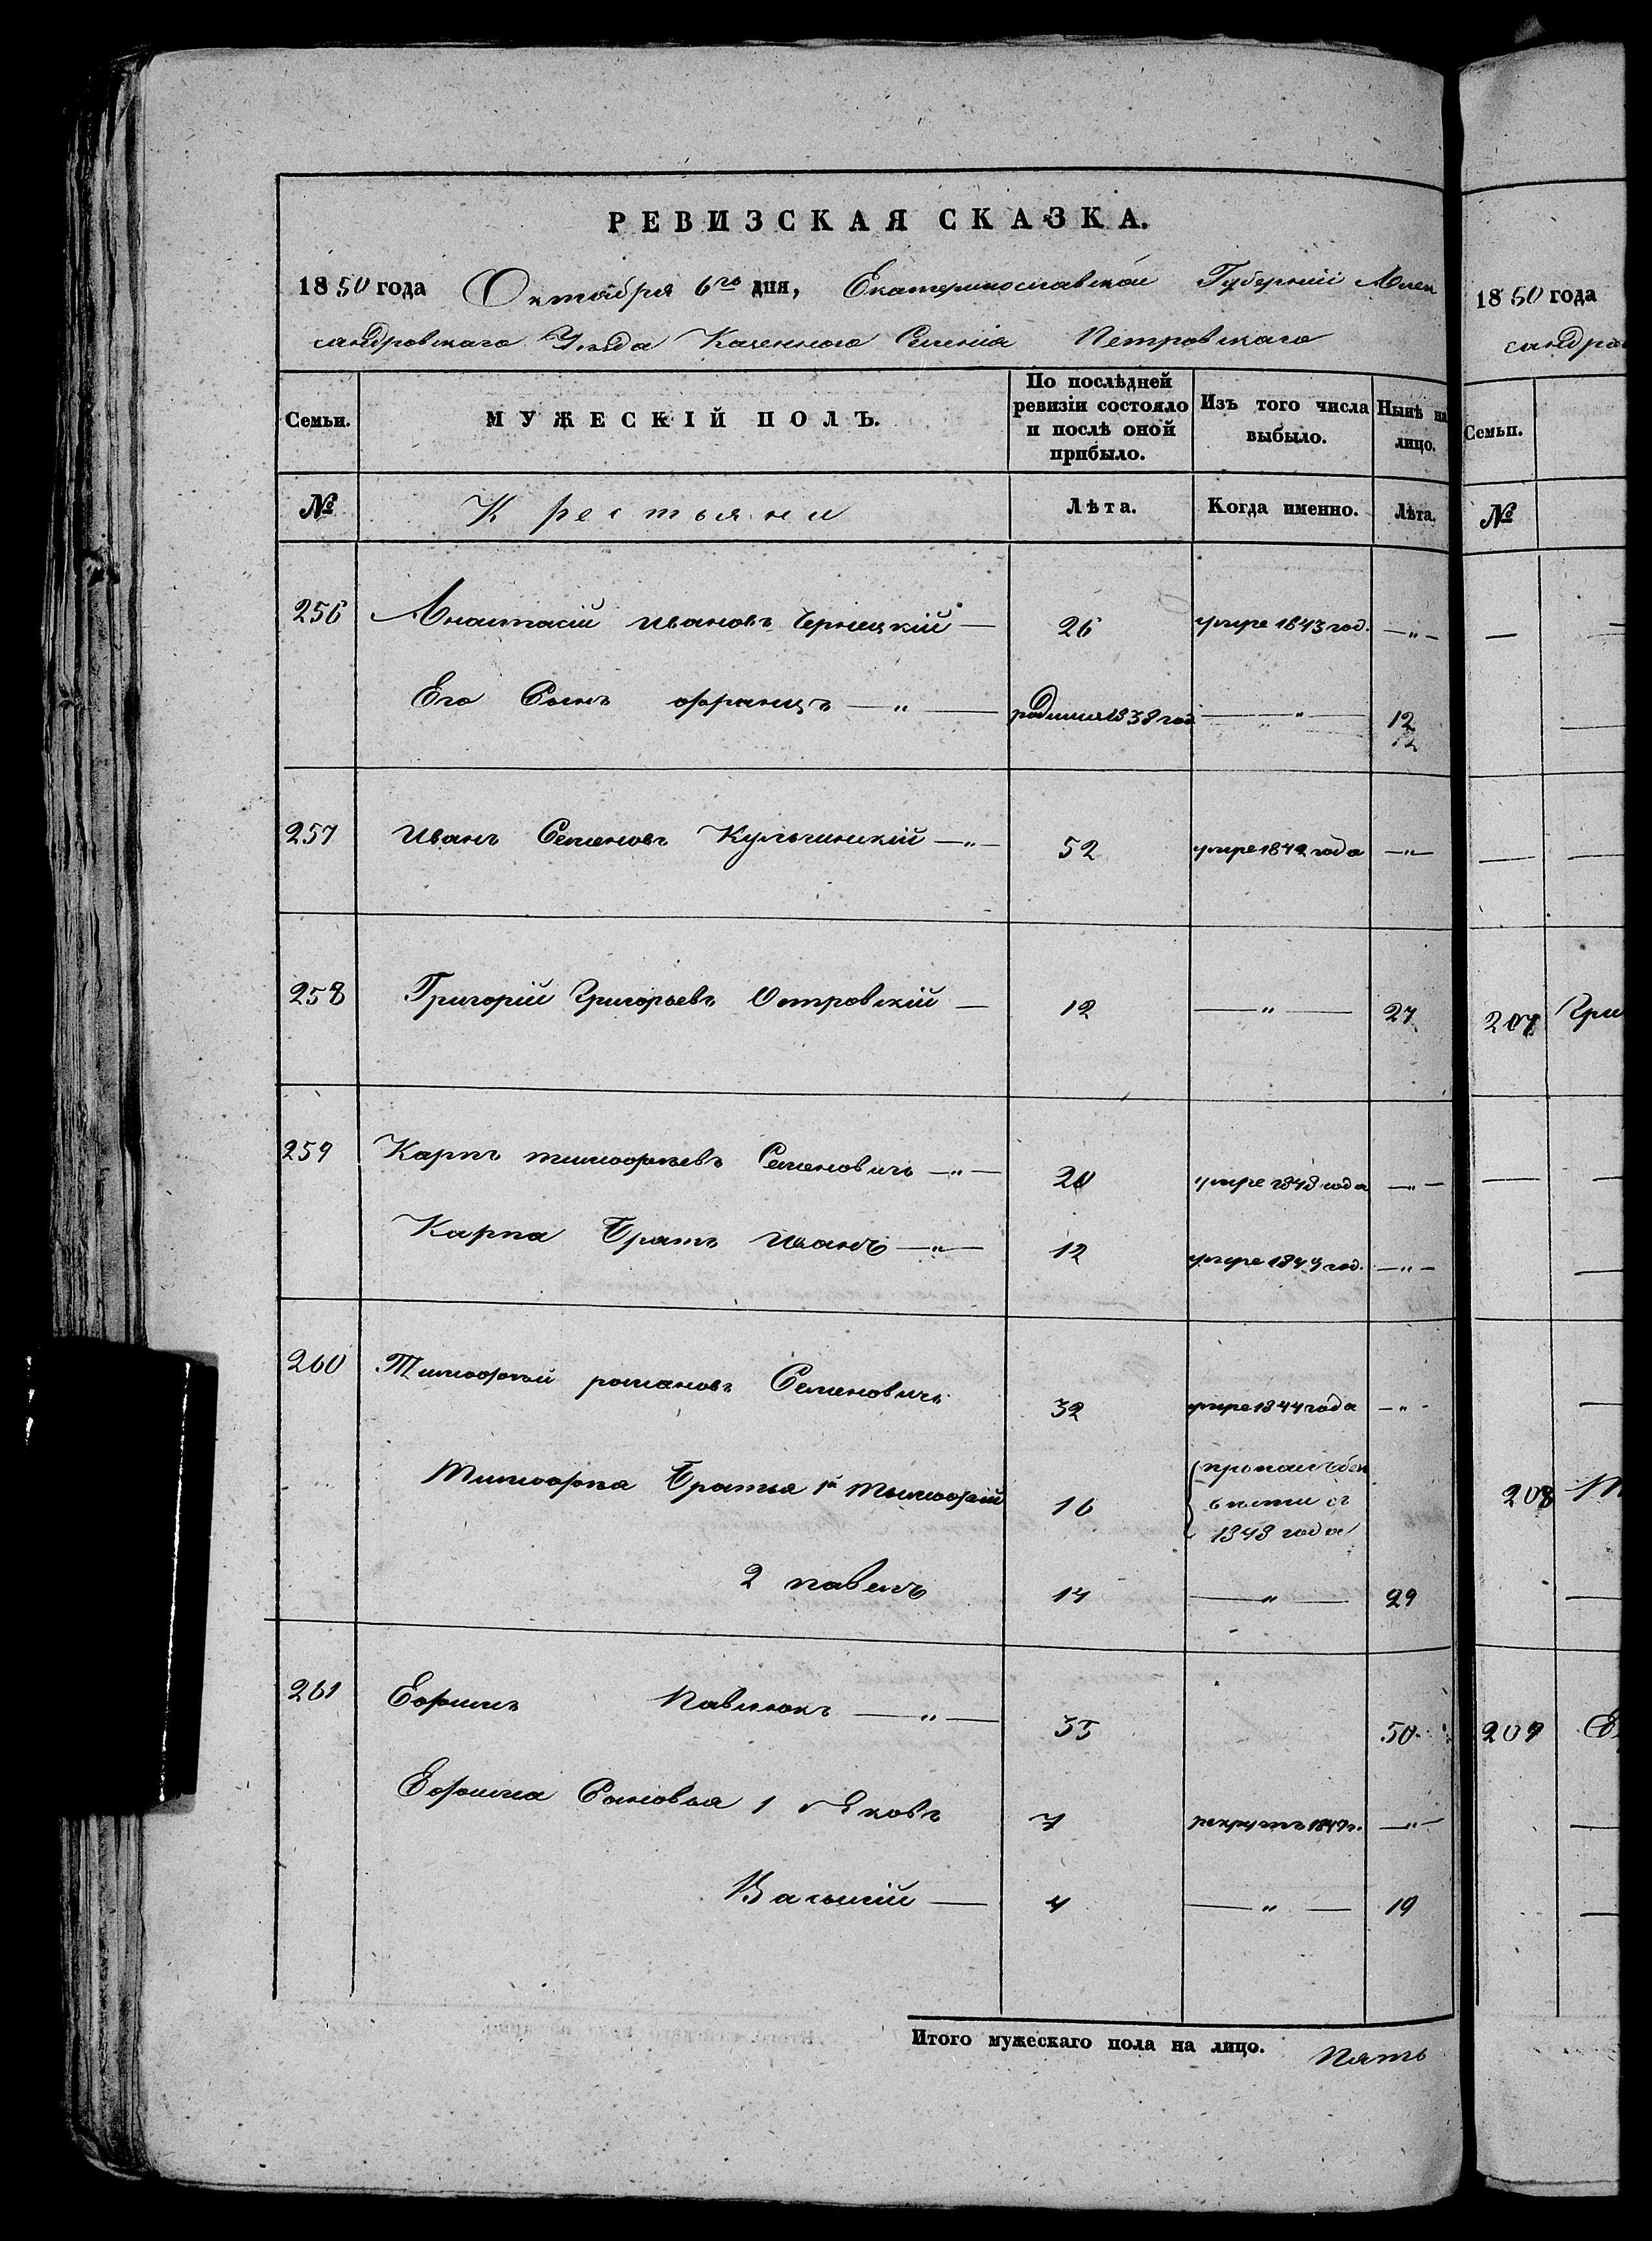 РЕВИЗСКАЯ СКАЗКА.
1850 года Октября 6го дня, Екатеринославской Губерніи Алек
сандровскаго Уѣзда Казенного Селенія Петровскаго
Семьи. МУЖЕСКІЙ ПОЛЪ. По послѣдней ревизіи состояло и послѣ оной прибыло. Изъ того числа выбыло. Нынѣ на лицо.
№ Крестьяни Лѣта. Когда именно. Лѣта.
256 Анастасій Ивановъ Чернецкій — 26 умре 1843 год. — " —
Его Сынъ Францъ — " — родился 1838 год — " — 12
12
257 Иванъ Семеновъ Кульчинскій — " — 52 умре 1842 года — " —
258 Григорій Григорьевъ Островскій — 12 — " — 27
259 Карпъ тимофѣевъ Семеновичъ — " — 20 умре 1848 года — " —
Карпа Братъ Иванъ — " — 12 умре 1844 год. — " —
260 Тимофѣй романовъ Семеновичъ 32 умре 1844 года — " —
Тимофѣя Братья 1й тимофѣй 16 пропалъ без
1848 года
2 павелъ 14 — " — 29
261 Ефимъ Павлюкъ — " — 35 50
Ефима Сыновья 1 Яковъ 7 рекрутъ 1849 г. — " —
Василій — 4 — " — 19
Итого мужескаго пола на лицо. Пять
1850 года
сандров
Семьи.
№
207 Гри
208
209